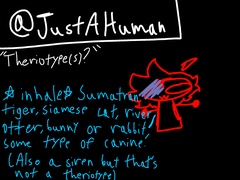 @JustAHuman
"Theriotype(s)?"
*inhale* Sumatran
tiger, siamese cat, river
otter, bunny or rabbit,
some type of canine.
(Also a siren but that's
not a theriotype)